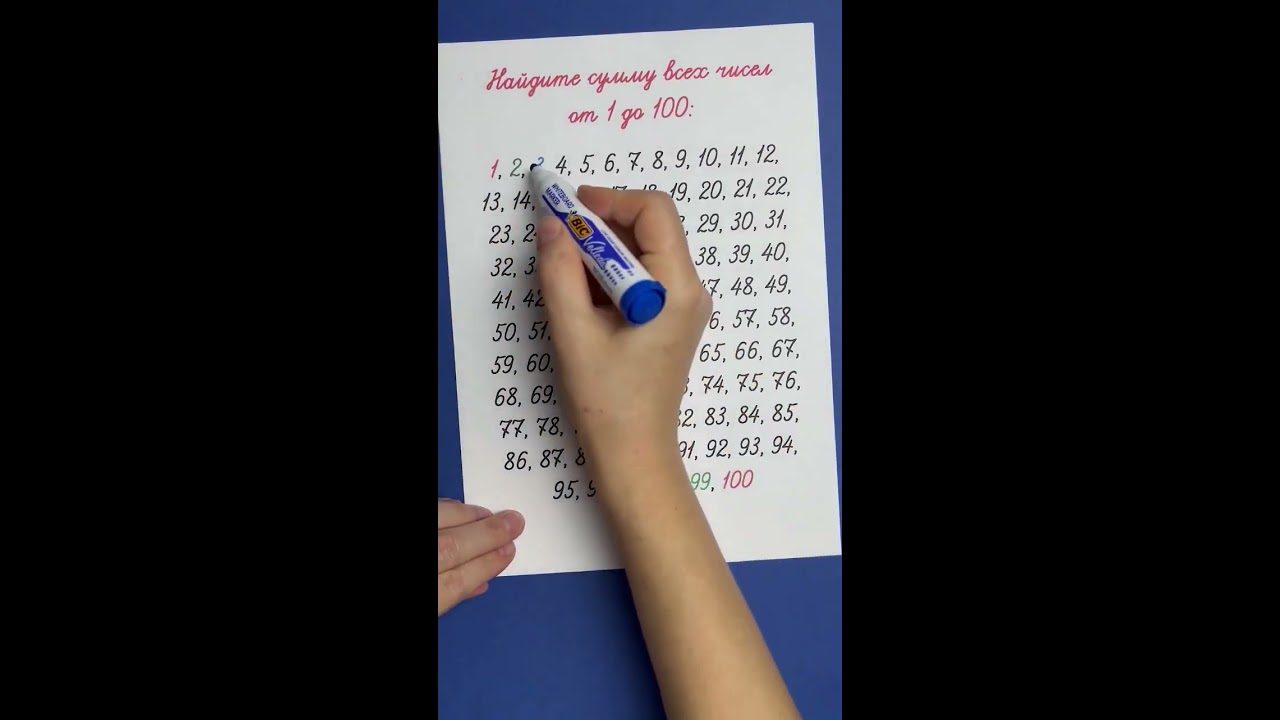 Найдите сумму всех чисел
от 1 до 100:
1, 2, 3, 4, 5, 6, 7, 8, 9, 10, 11, 12,
13, 14, 19, 20, 21, 22,
23, 29, 30, 31,
32, 38, 39, 40,
41, 42 47, 48, 49,
50, 51, 57, 58,
59, 60, 65, 66, 67,
68, 69, 74, 75, 76,
77, 78, 82, 83, 84, 85,
86, 87, 91, 92, 93, 94,
95, 99, 100
WHITEBOARD
MARKER
BIC
Velleda